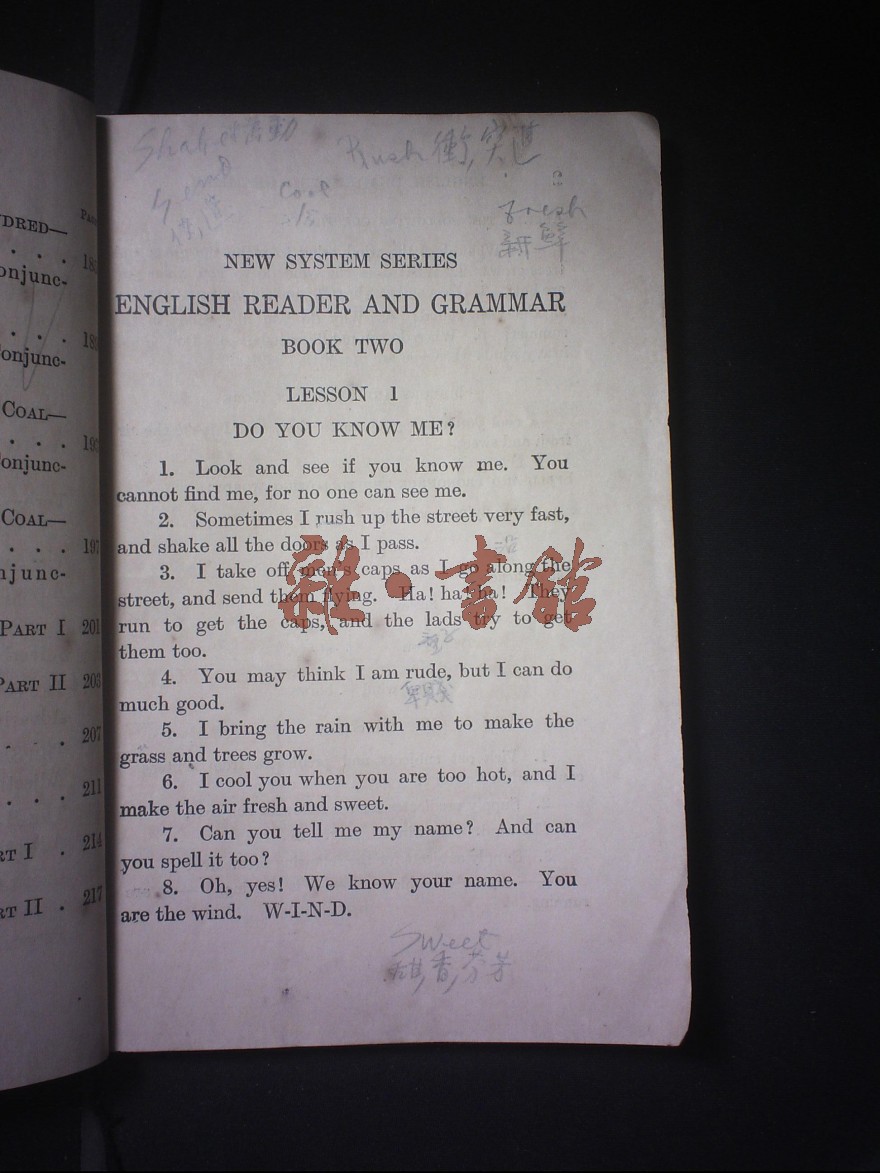 DRED—
PAG
. . . 18
onjunc-
. . . 18
onjunc-
COAL—
. . . 19
onjunc-
COAL—
. . . 197
njunc-
PART I 201
PART II 203
. . 207
. . . 211
RT I . 214
RT II . 217
Rush 衝,突進
Send
Cool
Fresh
新鮮
NEW SYSTEM SERIES
ENGLISH READER AND GRAMMAR
BOOK TWO
LESSON 1
DO YOU KNOW ME?
1. Look and see if you know me. You
cannot find me, for no one can see me.
2. Sometimes I rush up the street very fast,
and shake all the doors as I pass.
3. I take off men's caps as I go along the
street, and send them flying. Ha! ha! ha! They
run to get the caps, and the lads try to get
them too.
4. You may think I am rude, but I can do
much good.
卑賤
5. I bring the rain with me to make the
grass and trees grow.
6. I cool you when you are too hot, and I
make the air fresh and sweet.
7. Can you tell me my name? And can
you spell it too?
8. Oh, yes! We know your name. You
are the wind. W-I-N-D.
Sweet
甜,香,芬芳
雜·書館